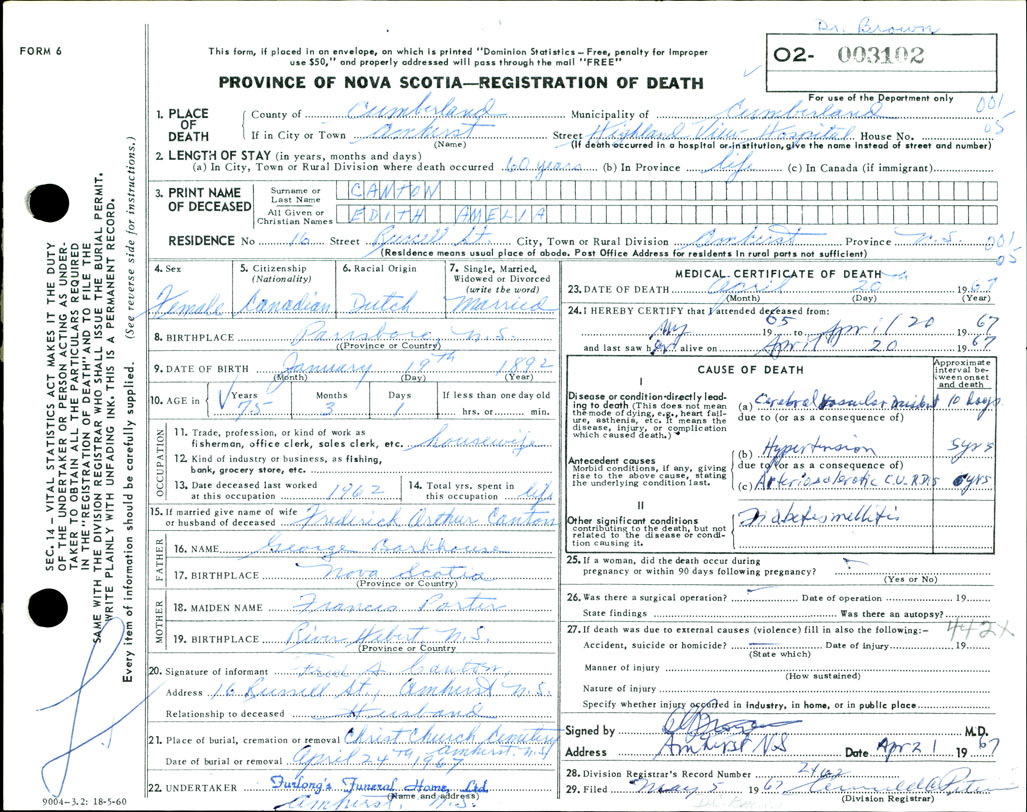 Dr. Brown
FORM 6
This form, if placed in an envelope, on which is printed "Dominion Statistics – Free, penalty for improper
use $50," and properly addressed will pass through the mail "FREE"
PROVINCE OF NOVA SCOTIA—REGISTRATION OF DEATH
02- 003102
For use of the Department only
001
05
1. PLACE OF DEATH
County of Cumberland Municipality of Cumberland
If in City or Town Amherst Street Highland View Hospital House No.
(Name) (If death occurred in a hospital or institution, give the name instead of street and number)
2. LENGTH OF STAY (in years, months and days)
(a) In City, Town or Rural Division where death occurred 60 years (b) In Province life (c) In Canada (if immigrant)
3. PRINT NAME OF DECEASED
Surname or Last Name CANTON
All Given or Christian Names EDITH AMELIA
RESIDENCE No 16 Street Russell St. City, Town or Rural Division Amherst Province N.S.
001
05
(Residence means usual place of abode. Post Office Address for residents in rural parts not sufficient)
4. Sex Female
5. Citizenship (Nationality) Canadian
6. Racial Origin Dutch
7. Single, Married, Widowed or Divorced (write the word) Married
8. BIRTHPLACE Parrsboro N.S.
(Province or Country)
9. DATE OF BIRTH January 19th 1892
(Month) (Day) (Year)
10. AGE in Years 75 Months 3 Days 1 If less than one day old
hrs. or min.
OCCUPATION
11. Trade, profession, or kind of work as
fisherman, office clerk, sales clerk, etc. housewife
12. Kind of industry or business, as fishing,
bank, grocery store, etc.
13. Date deceased last worked
at this occupation 1962
14. Total yrs. spent in
this occupation life
15. If married give name of wife
or husband of deceased Frederick Arthur Canton
FATHER
16. NAME George Barkhouse
17. BIRTHPLACE Nova Scotia
(Province or Country)
MOTHER
18. MAIDEN NAME Frances Porter
19. BIRTHPLACE River Hebert N.S.
(Province or Country
20. Signature of informant Fred A Canton
Address 16 Russell St., Amherst N.S.
Relationship to deceased Husband
21. Place of burial, cremation or removal Christ Church Cemetery
Amherst N.S.
Date of burial or removal April 24th 1967
22. UNDERTAKER Furlong's Funeral Home, Ltd.
(Name and address)
Amherst, N.S.
9004–3.2: 18-5-60
MEDICAL CERTIFICATE OF DEATH
23. DATE OF DEATH April 20 1967
(Month) (Day) (Year)
24. I HEREBY CERTIFY that I attended deceased from:
1965 to April 20 1967
and last saw her alive on April 20 1967
CAUSE OF DEATH
Approximate interval between onset and death
I
Disease or condition directly leading to death (This does not mean the mode of dying, e.g., heart failure, asthenia, etc. It means the disease, injury, or complication which caused death.)
(a) Cerebral vascular accident 10 days
due to (or as a consequence of)
Antecedent causes
Morbid conditions, if any, giving rise to the above cause, stating the underlying condition last.
(b) Hypertension 5yrs
due to (or as a consequence of)
(c) Arteriosclerotic C.V.R.D.
II
Other significant conditions
contributing to the death, but not related to the disease or condition causing it.
Diabetes mellitis
25. If a woman, did the death occur during
pregnancy or within 90 days following pregnancy?
(Yes or No)
26. Was there a surgical operation? Date of operation 19
State findings Was there an autopsy?
27. If death was due to external causes (violence) fill in also the following:– 442X
Accident, suicide or homicide? Date of injury 19
(State which)
Manner of injury
(How sustained)
Nature of injury
Specify whether injury occurred in industry, in home, or in public place
Signed by M.D.
Address Amherst NS Date Apr 21 1967
28. Division Registrar's Record Number 2462
29. Filed May 5 1967
(Division Registrar)
SEC. 14 – VITAL STATISTICS ACT MAKES IT THE DUTY
OF THE UNDERTAKER OR PERSON ACTING AS UNDER-
TAKER TO OBTAIN ALL THE PARTICULARS REQUIRED
IN THE "REGISTRATION OF DEATH" AND TO FILE THE
SAME WITH THE DIVISION REGISTRAR WHO SHALL ISSUE THE BURIAL PERMIT.
WRITE PLAINLY WITH UNFADING INK. THIS IS A PERMANENT RECORD.
Every item of information should be carefully supplied. (See reverse side for instructions.)